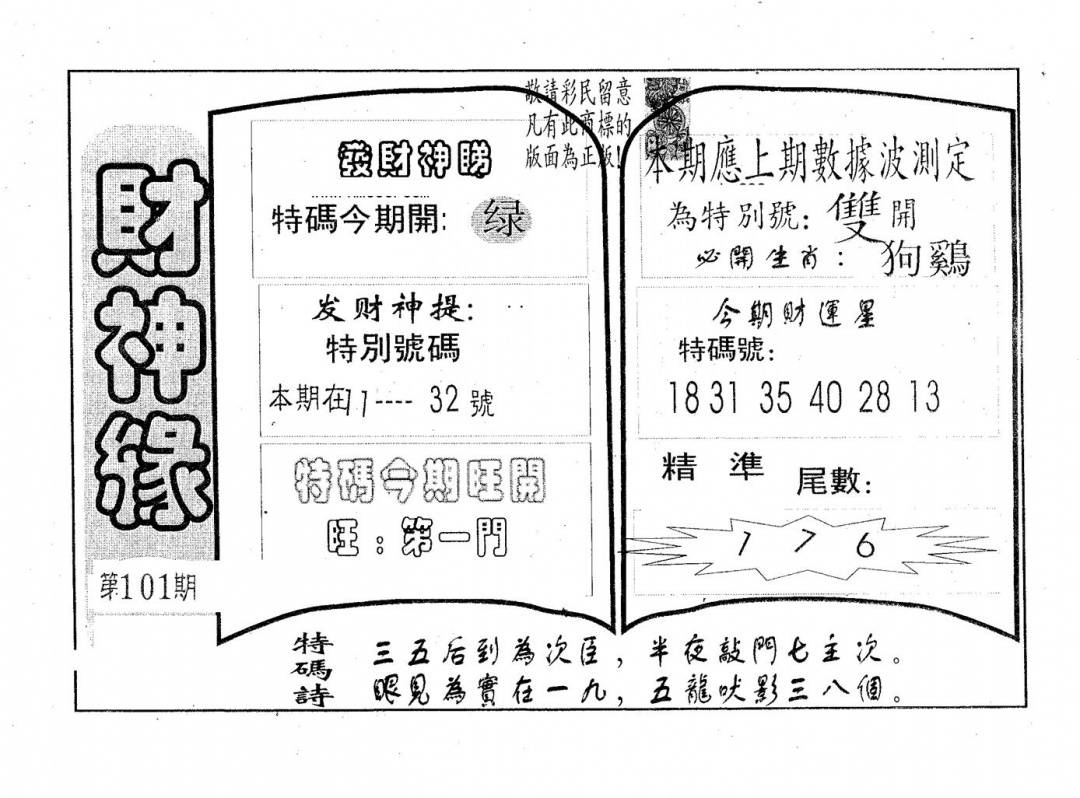 財神緣
第101期
敬請彩民留意
凡有此商標的
版面為正版!
發財神睇
特碼今期開: 绿
发财神提:
特別號碼
本期在11----32號
特碼今期旺開
旺:第一門
本期應上期數據波測定
為特別號:雙開
必開生肖:狗鷄
今期財運星
特碼號:
18 31 35 40 28 13
精準
尾數:
1 7 6
特碼詩
三五后到為次臣,半夜敲門七主次。
眼見為實在一九,五龍吠影三八個。